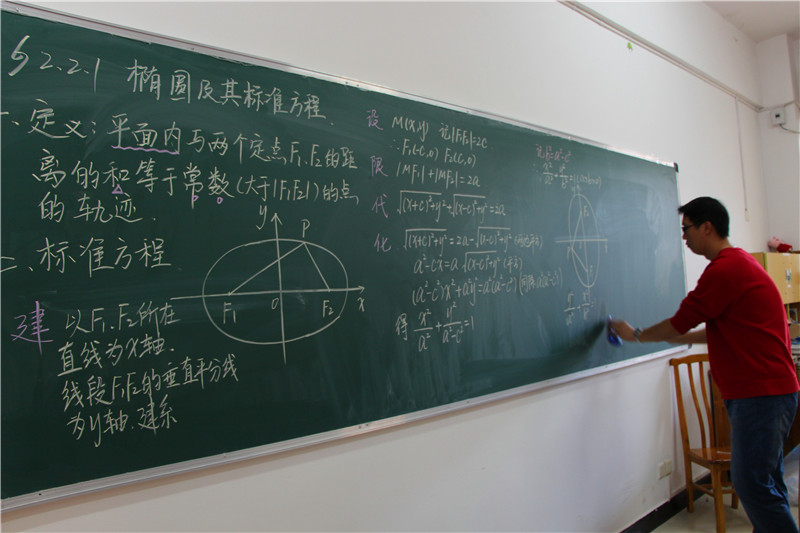 §2.2.1 椭圆及其标准方程.
一、定义:平面内与两个定点F₁、F₂的距
离的和等于常数(大于|F₁F₂|)的点
的轨迹.
二、标准方程
建 以F₁、F₂所在
直线为x轴.
线段F₁F₂的垂直平分线
为y轴.建系
y
P
F₁ O F₂ x
设 M(x,y) 记|F₁F₂|=2c
∴F₁(-c,0) F₂(c,0)
限 |MF₁|+|MF₂|=2a
代 √(x+c)²+y²+√(x-c)²+y²=2a
化 √(x+c)²+y²=2a-√(x-c)²+y²
a²-cx=a√(x-c)²+y²
(a²-c²)x²+a²y²=a²(a²-c²)
得 x²/a²+y²/(a²-c²)=1